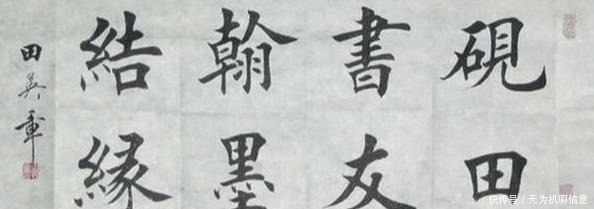 硯田
書友
翰墨
結緣
田英章
快传号/无为扒聊信息